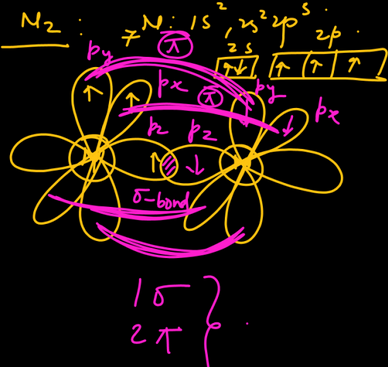 N₂ : ₇N : 1s², 2s² 2p³
2s 2p
↑↓ ↑ ↑ ↑
py π
px π py
↑ ↑ ↓ px
pz pz
↑ ↓
σ-bond
1σ
2π